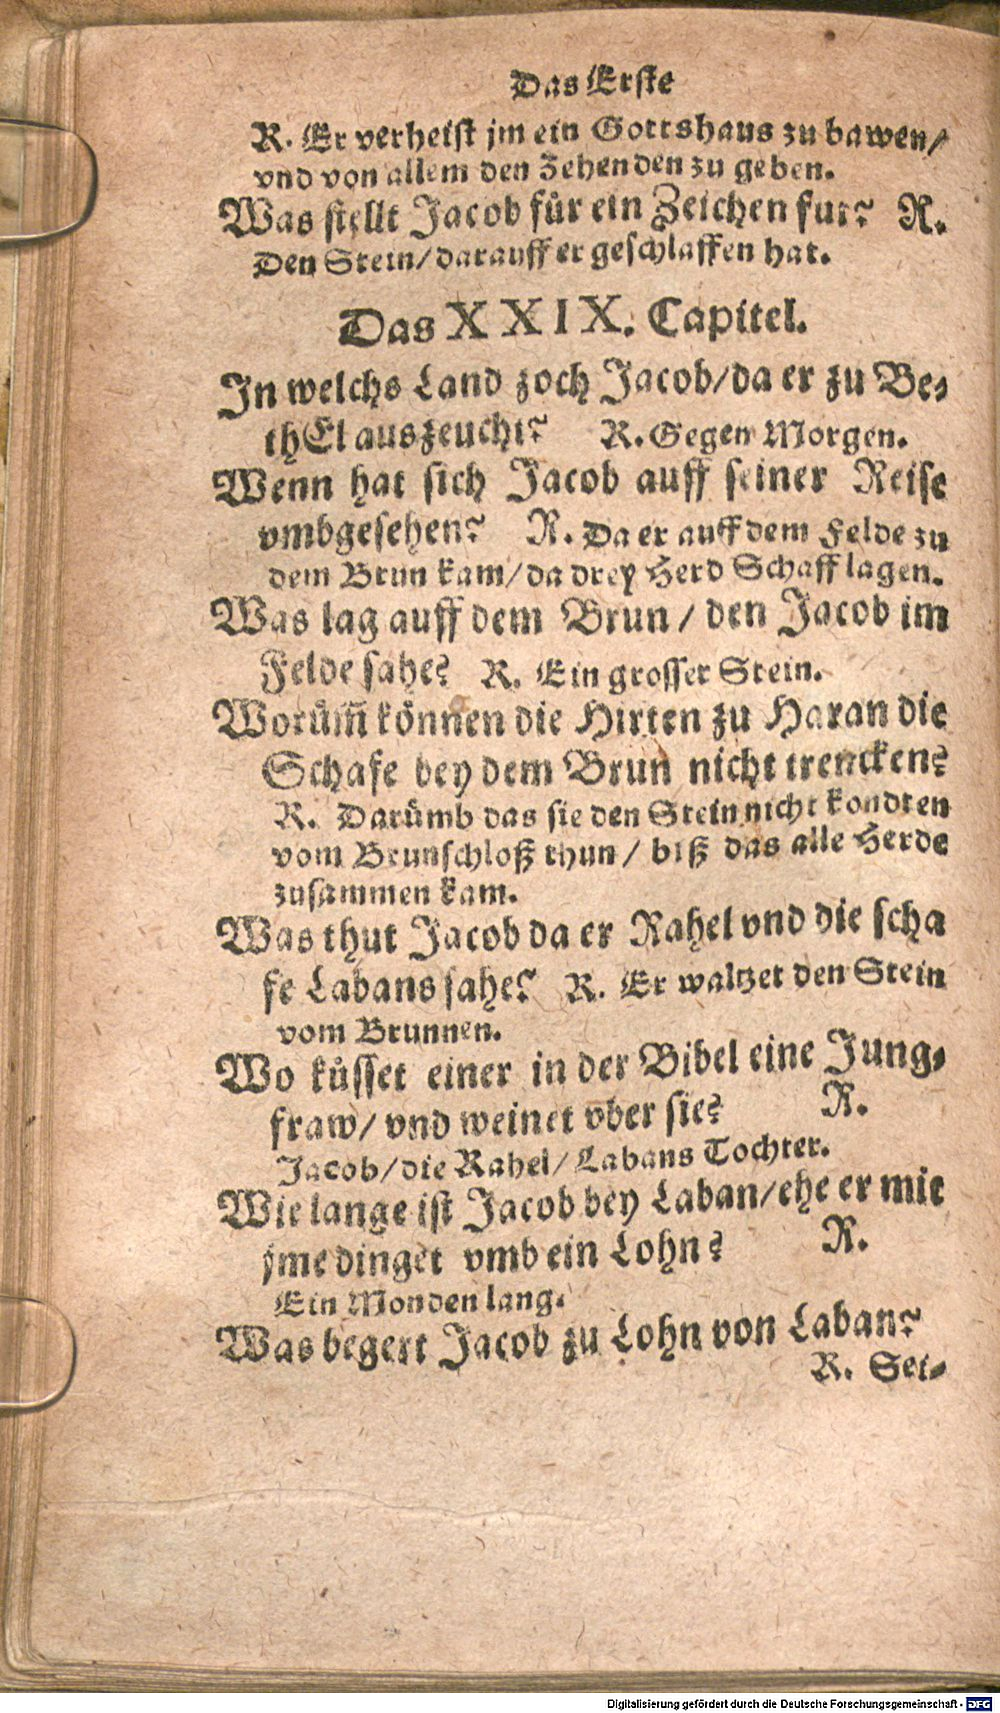 Das Erste
R. Er verheist jm ein Gottshaus zu bawen/
vnd von allem den Zehenden zu geben.
Was stellt Jacob für ein Zeichen fur? R.
Den Stein/darauff er geschlaffen hat.
Das XXIX. Capitel.
In welchs Land zoch Jacob/da er zu Be-
thEl auszeucht? R. Gegen Morgen.
Wenn hat sich Jacob auff seiner Reise
vmbgesehen? R. Da er auff dem Felde zu
dem Brun kam/da drey Herd Schaff lagen.
Was lag auff dem Brun / den Jacob im
Felde sahe? R. Ein grosser Stein.
Worüm̃ können die Hirten zu Haran die
Schafe bey dem Brun nicht trencken?
R. Darümb das sie den Stein nicht kondten
vom Brunschloß thun / biß das alle Herde
zusammen kam.
Was thut Jacob da er Rahel vnd die scha
fe Labans sahe? R. Er waltzet den Stein
vom Brunnen.
Wo küsset einer in der Bibel eine Jung-
fraw/ vnd weinet vber sie? R.
Jacob/die Rahel/Labans Tochter.
Wie lange ist Jacob bey Laban/ehe er mit
jme dinget vmb ein Lohn? R.
Ein Monden lang.
Was begert Jacob zu Lohn von Laban?
R. Sei-
Digitalisierung gefördert durch die Deutsche Forschungsgemeinschaft - DFG